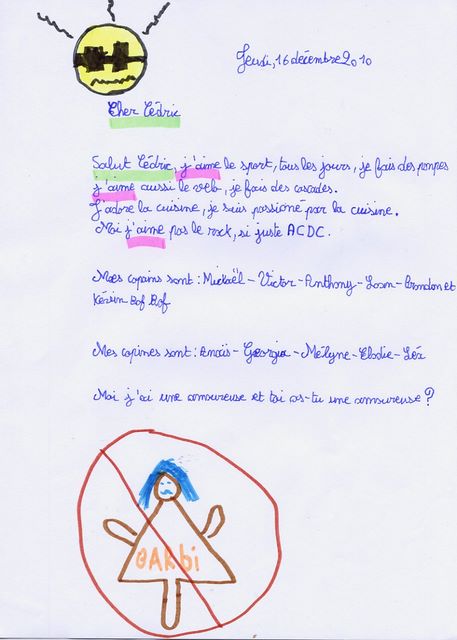 Jeudi, 16 décembre 2010
Cher Cédric
Salut Cédric, j'aime le sport, tous les jours, je fais des pompes
j'aime aussi le velo, je fais des cascades.
J'adore la cuisine, je suis passioné par la cuisine.
Moi j'aime pas le rock, si juste ACDC.
Mes copains sont : Mickaël - Victor - Anthony - Loan - Brandon et
Kévin Bof Bof
Mes copines sont : Anaïs - Georgia - Mélyne - Elodie - Léa
Moi j'ai une amoureuse et toi as-tu une amoureuse ?
BARbi